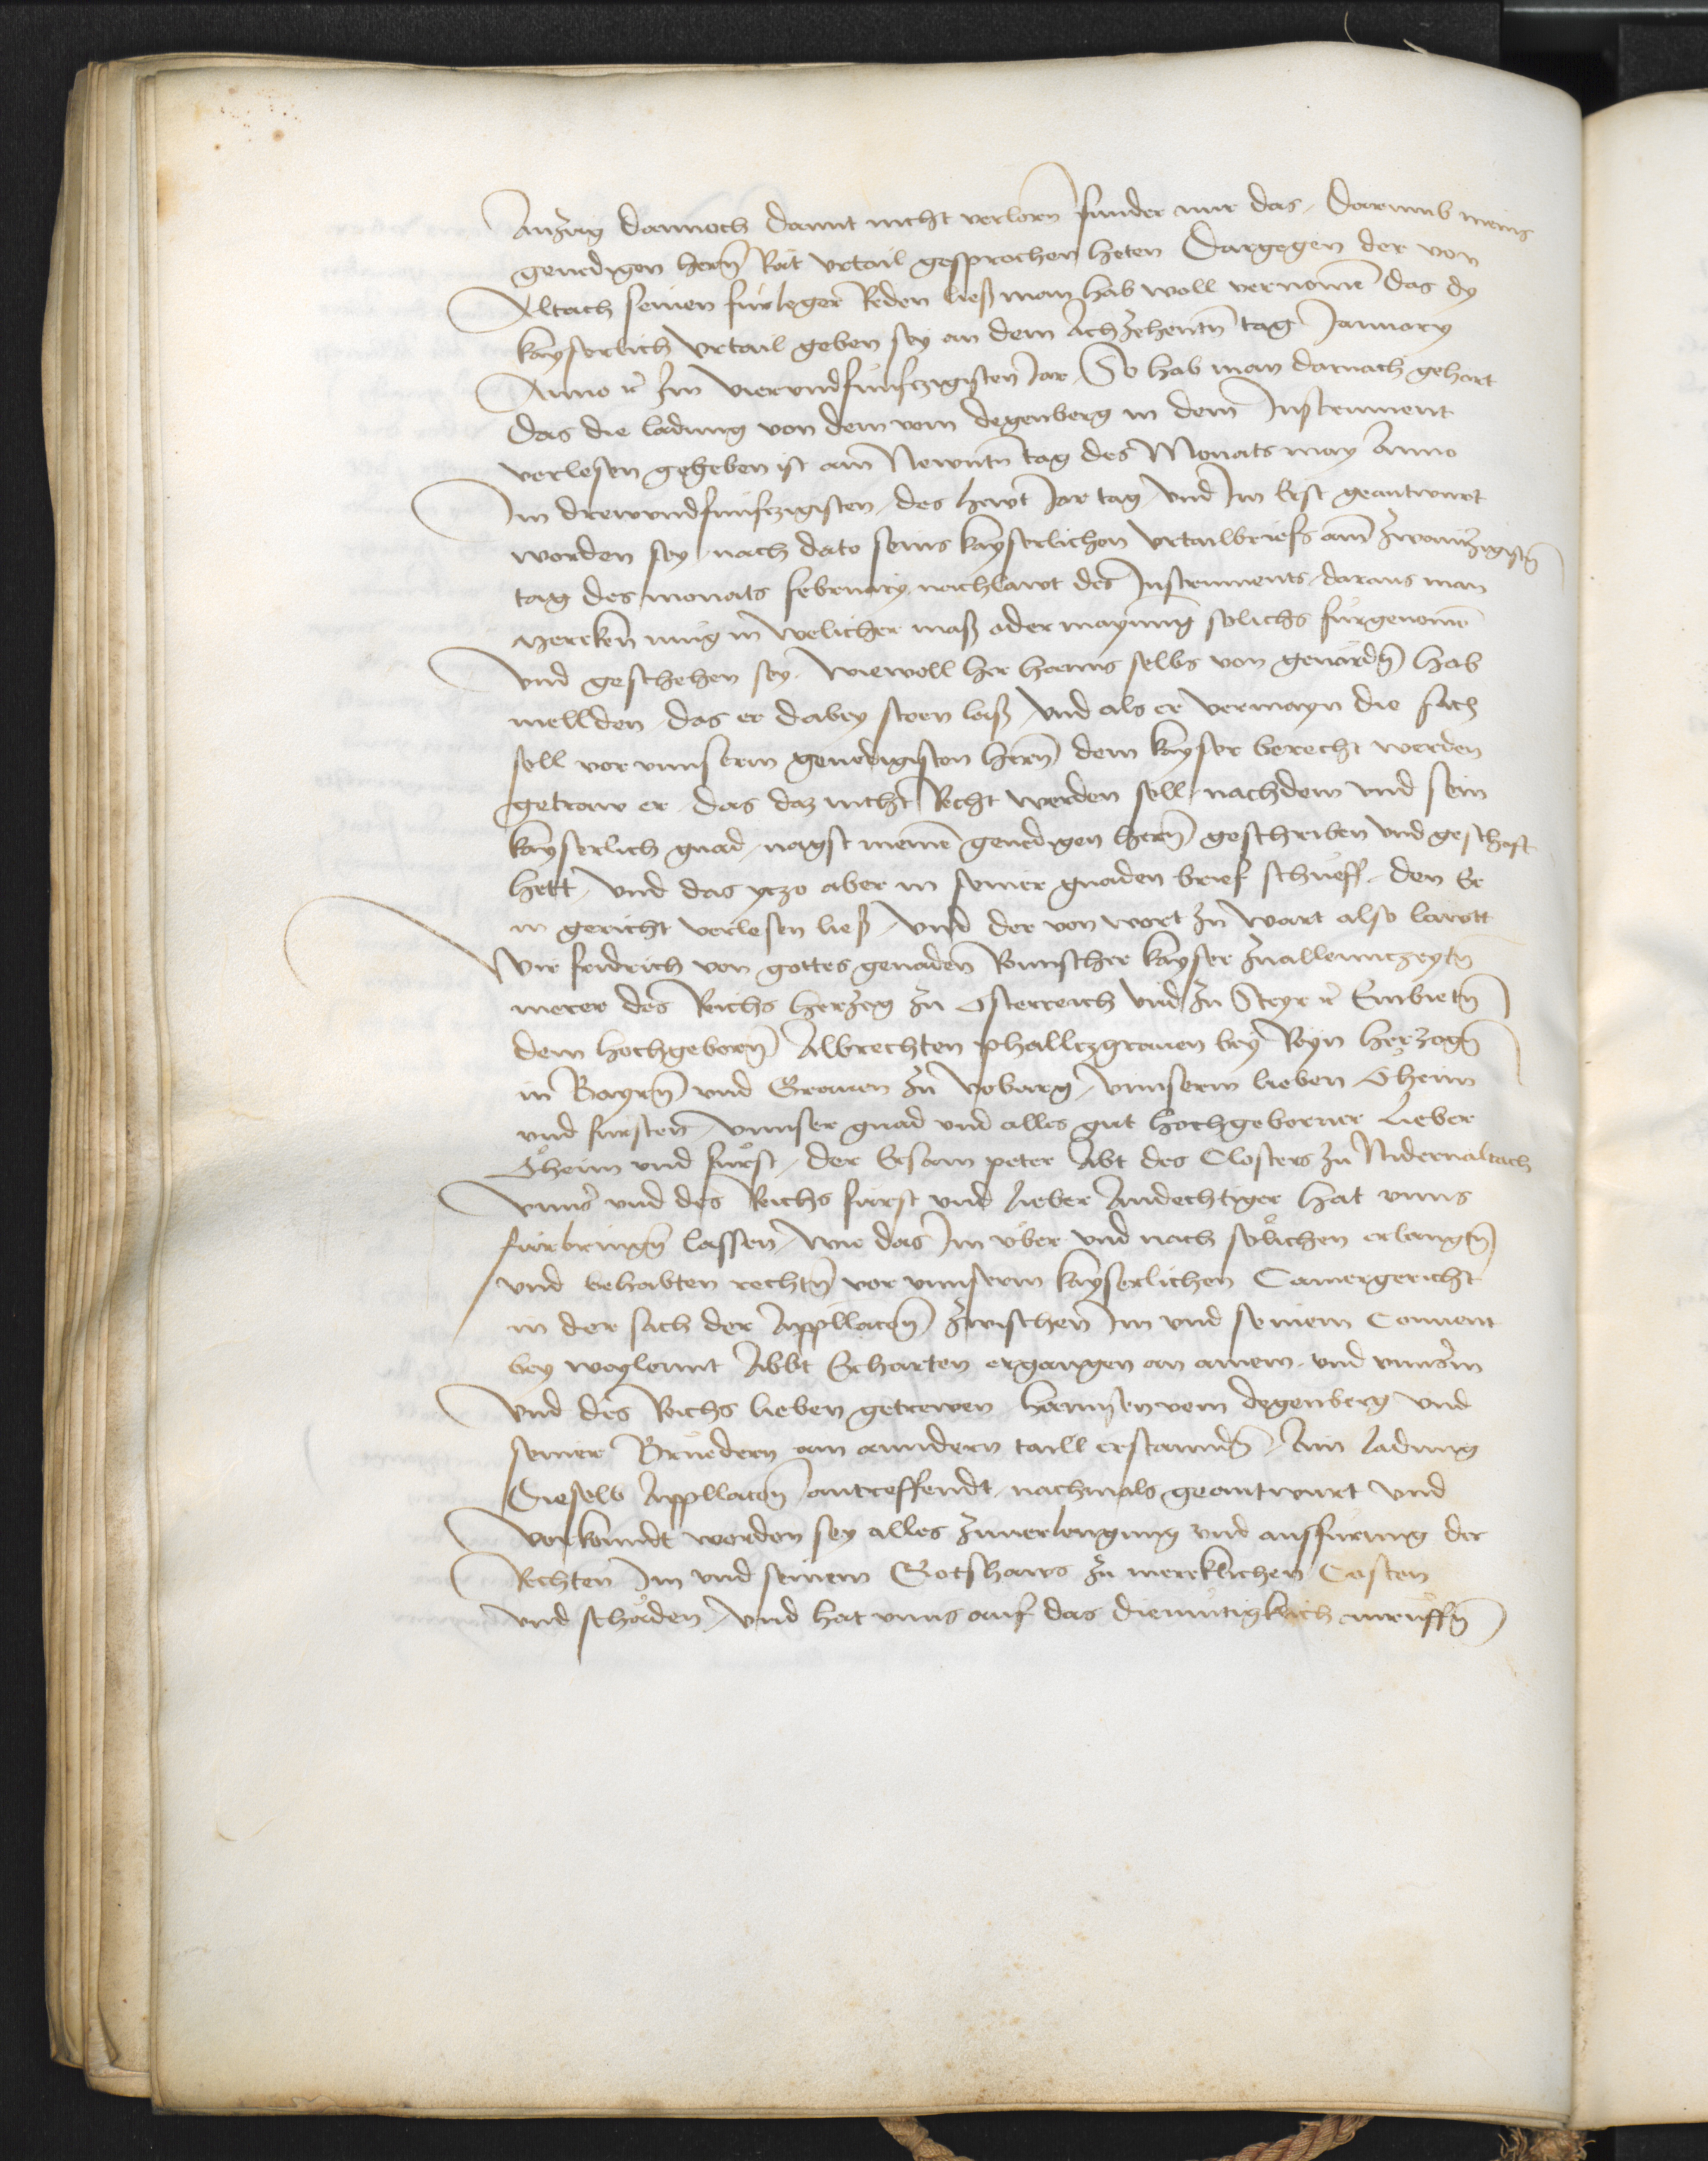 Anzug dannoch damit nicht verlorn sunder nur das, Darumb meins
genedigen herrn Rät vrtail gesprochen heten Dargegen der von
Altach seinen fürleger Reden ließ man hab woll vernomen das dy
kayserlich vrtail geben sey an dem Achzehentn tag January
Anno rc Im vierundfünfczigisten Jar, So hab man darnach gehort
Das die ladung von dem vom degenberg in dem Instrument
verlesen gegeben ist am Newntn tag des Monats may Anno
Im drewundfünfczigisten, des hewt Jar tag, vnd Im Erst geantwurt
worden sey, nach dato seins kayserlichen vrtailbriefs am zwainczigistn
tag des monats february nachlawt des Instruments, daraus man
mercken mug in welicher maß oder maynung solichs fürgenomen
vnd geschehen sey. Wiewoll her hanns selbs von genaden hab
mellden, das er dabey steen laß, vnd als er vermayn die sach
soll vor vnnserm genedigisten herrn dem kayser berecht werden
getraw er, das daz nicht Recht werden soll, nachdem vnd sein
kayserlich gnad, nagst meinem genedigen herrn geschriben vnd geschaft
hett, vnd das yczo aber in seiner gnaden brief schueff, den Er
in gericht verlesen ließ, vnd der von wort zu wart also lawtt
Wir fridrich von gottes genaden Romischer kayser zuallennczeytn
merer des Reichs herzog zu Osterreich vnd zu Steyr rc Embietn
dem hochgeborn Albrechten phallczgrauen bey Reyn herzogn
in Bayrn vnd Grauen zu voburg, vnnserm lieben Oheim
vnd fursten, vnnser gnad vnd alles gut hochgeborner lieber
Oheim vnd fürst, der Ersam peter Abt des Closters zu Nidernaltach
vnnser vnd des Reichs fürst vnd lieber Andechtiger hat vnns
fürbringn lassen, wie das Im vber vnd nach solichen erlangtn
vnd behabten rechtn vor vnnserm kayserlichen Camergericht
in der sach der Appllacon zwischen Im vnd seinem Conuent
bey weylennt Abbt Erharten ergangen an ainem, vnd vnnserm
vnd des Reichs lieben getrewen hannsen vom degenberg vnd
seiner Bruedern am anndern taill erstanndn, Ain ladung
Dieselb Appllacon antreffendt, nachmals geantwurt vnd
verkunndt worden sey alles zuuerlengung vnd ausfürung der
Rechten Im vnd seinem Gotshaws zu mercklichen Costen
vnd schaden, vnd hat vnns auf das diemütigklich anruffn